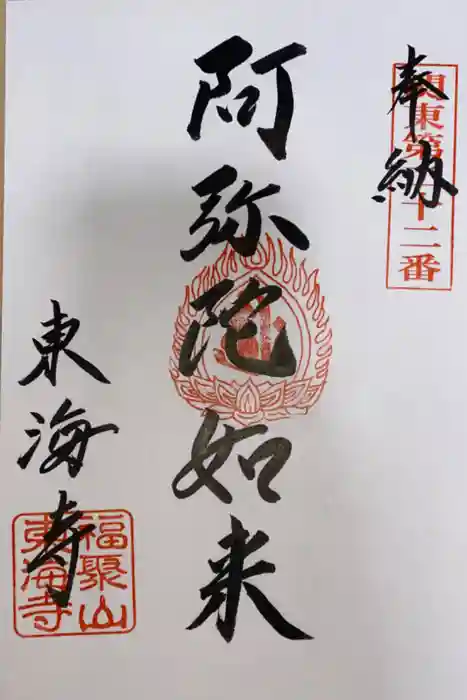 奉納
関東第十二番
阿弥陀如来
東海寺
福聚山
東海寺